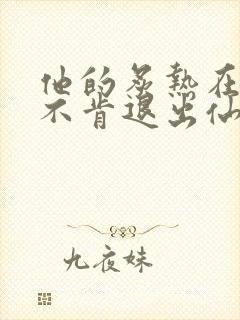 他的炙熱在
不肯退出仙
九夜妹